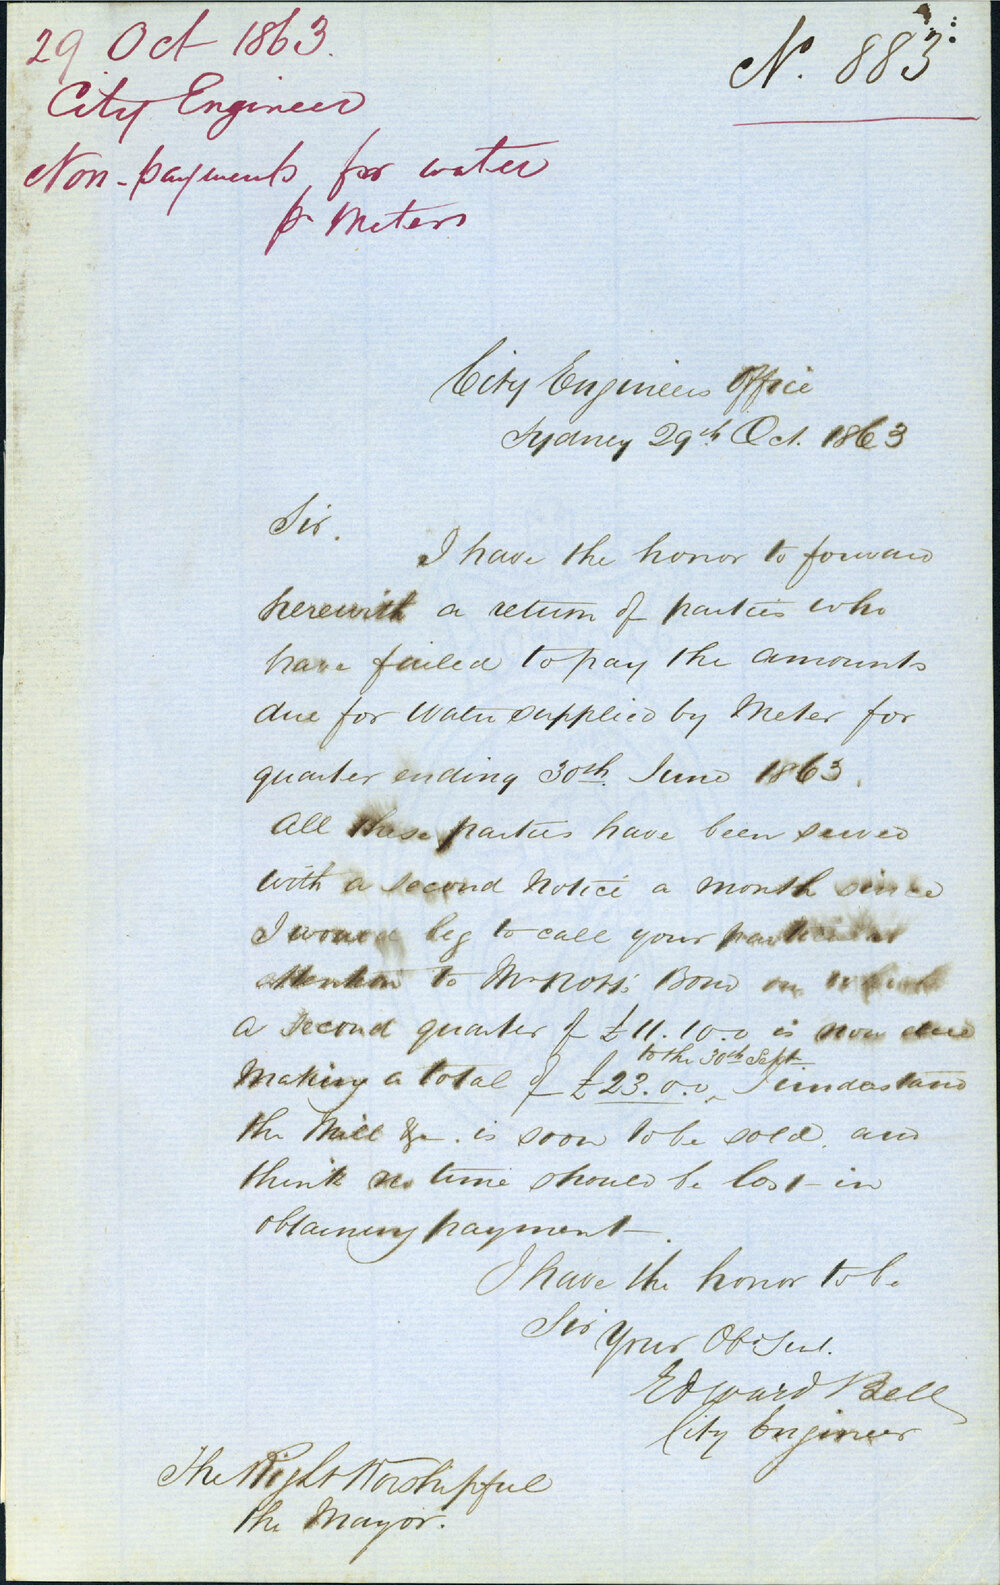 29 Oct 1863.
City Engineer
Non-payments for water
pr Meters
No. 883
City Engineers Office
Sydney 29th Oct. 1863
Sir.
I have the honor to forward
herewith a return of parties who
have failed to pay the amounts
due for Water supplied by Meter for
quarter ending 30th June 1863.
All these parties have been served
with a second Notice a month since
I would beg to call your particular
attention to Mr Ross's Bond on which
a second quarter of £11.10.0 is now due
to the 30th Sept.
Making a total of £23.0.0 I understand
the Mill &c. is soon to be sold. and
think no time should be lost in
obtaining payment.
I have the honor to be
Sir
Your Obt Sevt.
Edward Bell
City Engineer
The Right Worshipful
the Mayor.